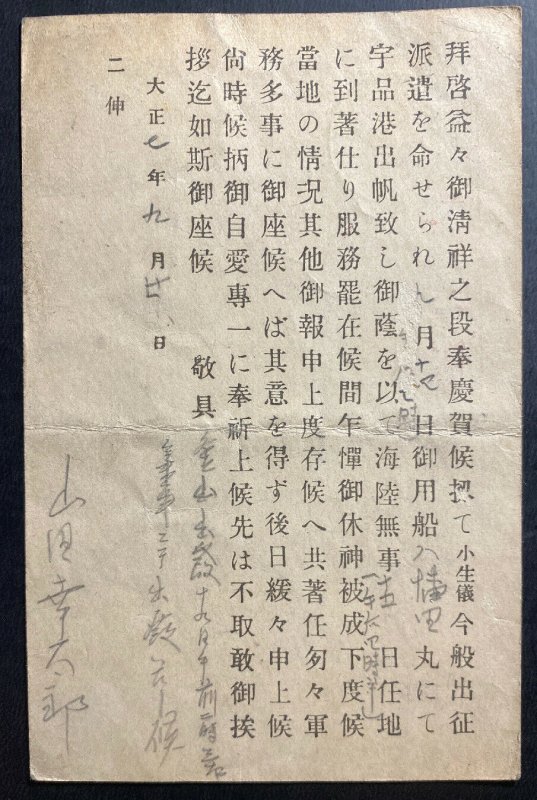 拜啓益々御淸祥之段奉慶賀候扨て小生儀今般出征
派遣を命せられ九月十四日御用船八幡丸にて
宇品港出帆致し御蔭を以て海陸無事廿日任地
に到著仕り服務罷在候間乍憚御休神被成下度候
當地の情況其他御報申上度存候へ共著任匆々軍
務多事に御座候へば其意を得ず後日緩々申上候
尙時候柄御自愛專一に奉祈上候先は不取敢御挨
拶迄如斯御座候　敬具
大正七年九月廿日
二伸
釜山出發十九日午前
出發
候
山田幸太郎